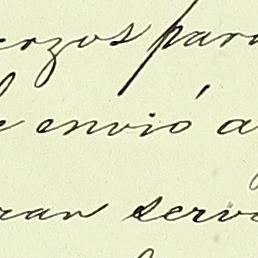 erzos para
e envió a
ran serv